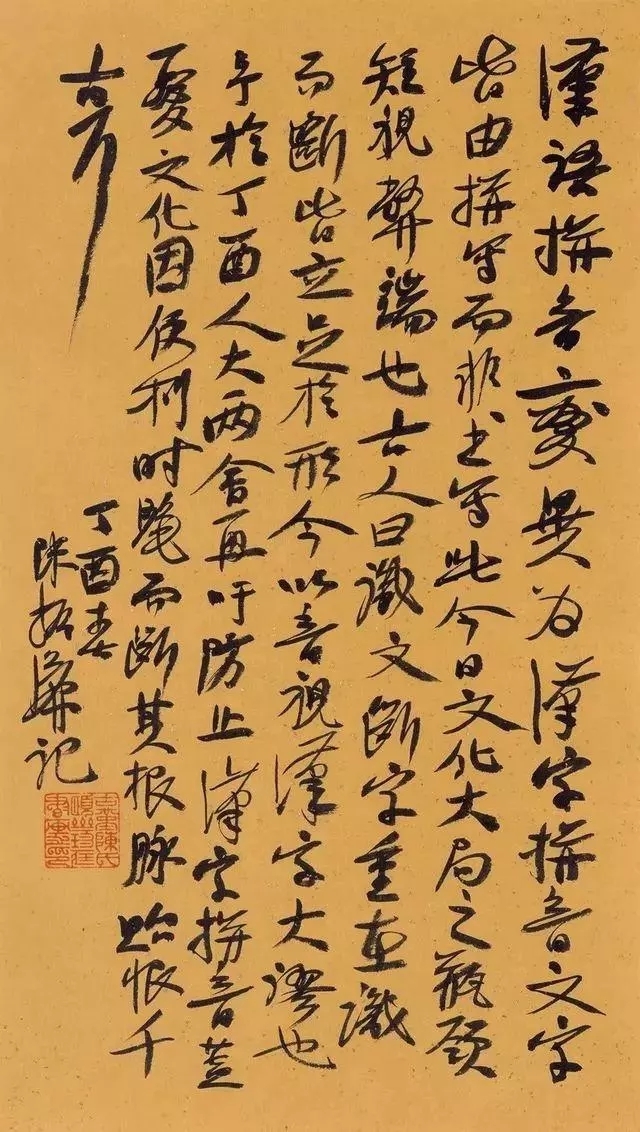 漢語拼音變異为漢字拼音文字
皆由拼写而非书写此今日文化大局之瓶颈
短視弊端也古人曰識文斷字重在識
而斷皆立足於形今以音視漢字大謬也
予於丁酉人大两會再吁防止漢字拼音盖
憂文化因便利时髦而斷其根脉贻恨千
古
丁酉春
陈振濂记